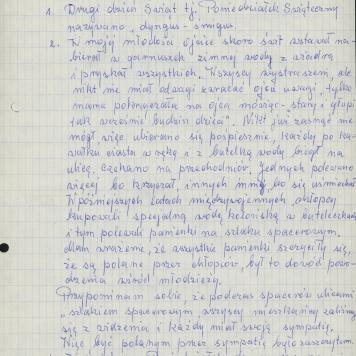 1. Drugi dzień Świąt tj. Poniedziałek Świąteczny
nazywano "dyngus - smigus.
2. W mojej młodości ojciec skoro świt wstawał na-
bierał w garnuszek zimnej wody z wiadra
i pryskał wszystkich. Wszyscy wystraszeni, ale
nikt nie miał odwagi zwracać ojcu uwagi, tylko
mama pokrzyczała na ojca mówiąc - stary i głupi
tak wcześnie budzisz dzieci". Nikt już zasnąć nie
mógł, więc ubierano się pospiesznie, każdy po ka-
wałku ciasta w rękę i z butelką wody biegł na
ulicę. Czekano na przechodniów. Jednych polewano
więcej bo krzyczał, innych mniej bo się uśmiechał
W późniejszych latach międzywojennych, chłopcy
kupowali specjalną wodę kolońską w buteleczkach
i tym polewali panienki na szlaku spacerowym.
Mam wrażenie, że wszystkie panienki szczyciły się,
że są polane przez chłopców, był to dowód powo-
dzenia wśród młodzieży.
Przypominam sobie, że podczas spacerów ulicami
"szlakiem spacerowym, wszyscy mieszkańcy
się z widzenia i każdy miał swoją sympatię.
Więc być polanym przez sympatię było zaszczytem.